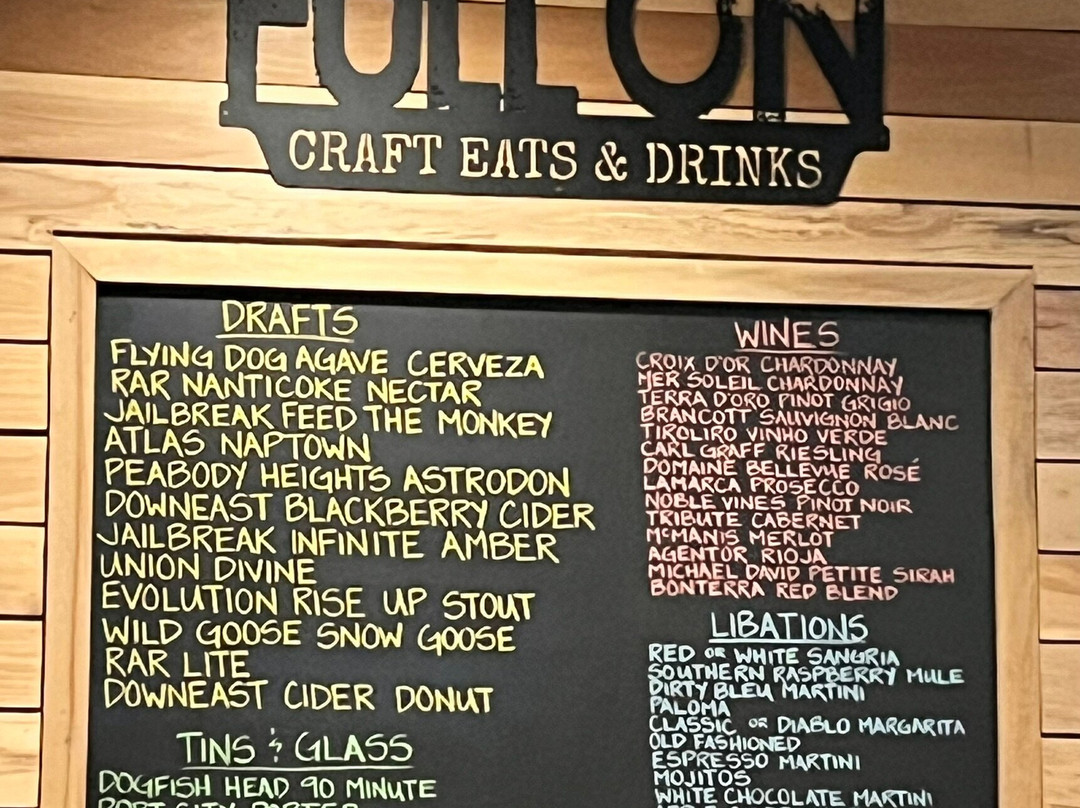 FULL ON
CRAFT EATS & DRINKS
DRAFTS
FLYING DOG AGAVE CERVEZA
RAR NANTICOKE NECTAR
JAILBREAK FEED THE MONKEY
ATLAS NAPTOWN
PEABODY HEIGHTS ASTRODON
DOWNEAST BLACKBERRY CIDER
JAILBREAK INFINITE AMBER
UNION DIVINE
EVOLUTION RISE UP STOUT
WILD GOOSE SNOW GOOSE
RAR LITE
DOWNEAST CIDER DONUT
TINS & GLASS
DOGFISH HEAD 90 MINUTE
PORT CITY PORTER
WINES
CROIX D'OR CHARDONNAY
MER SOLEIL CHARDONNAY
TERRA D'ORO PINOT GRIGIO
BRANCOTT SAUVIGNON BLANC
TIROLIRO VINHO VERDE
CARL GRAFF RIESLING
DOMAINE BELLEVUE ROSÉ
LAMARCA PROSECCO
NOBLE VINES PINOT NOIR
TRIBUTE CABERNET
McMANIS MERLOT
AGENTOR RIOJA
MICHAEL DAVID PETITE SIRAH
BONTERRA RED BLEND
LIBATIONS
RED OR WHITE SANGRIA
SOUTHERN RASPBERRY MULE
DIRTY BLEU MARTINI
PALOMA
CLASSIC OR DIABLO MARGARITA
OLD FASHIONED
ESPRESSO MARTINI
MOJITOS
WHITE CHOCOLATE MARTINI